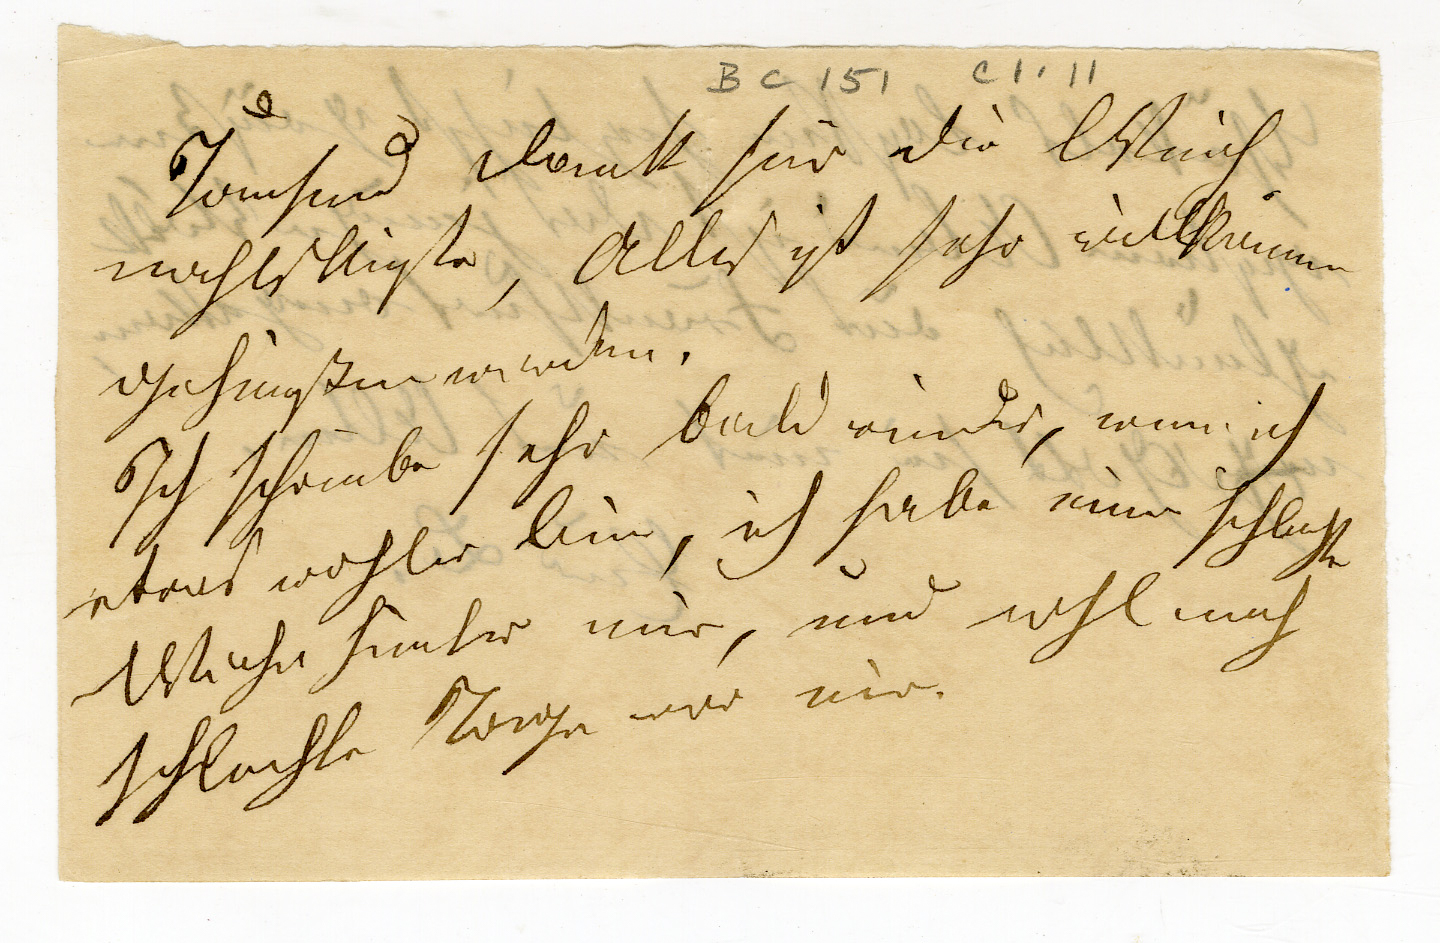 BC 151 C1.11
Tausend Dank für die Weih
nachtskiste, Alles ist sehr willkommen
geheißen worden.
Ich schreibe sehr bald wieder, wenn ich
etwas wohler bin, ich habe eine schlechte
Woche hinter mir, und wohl noch
schlechte Tage vor mir.